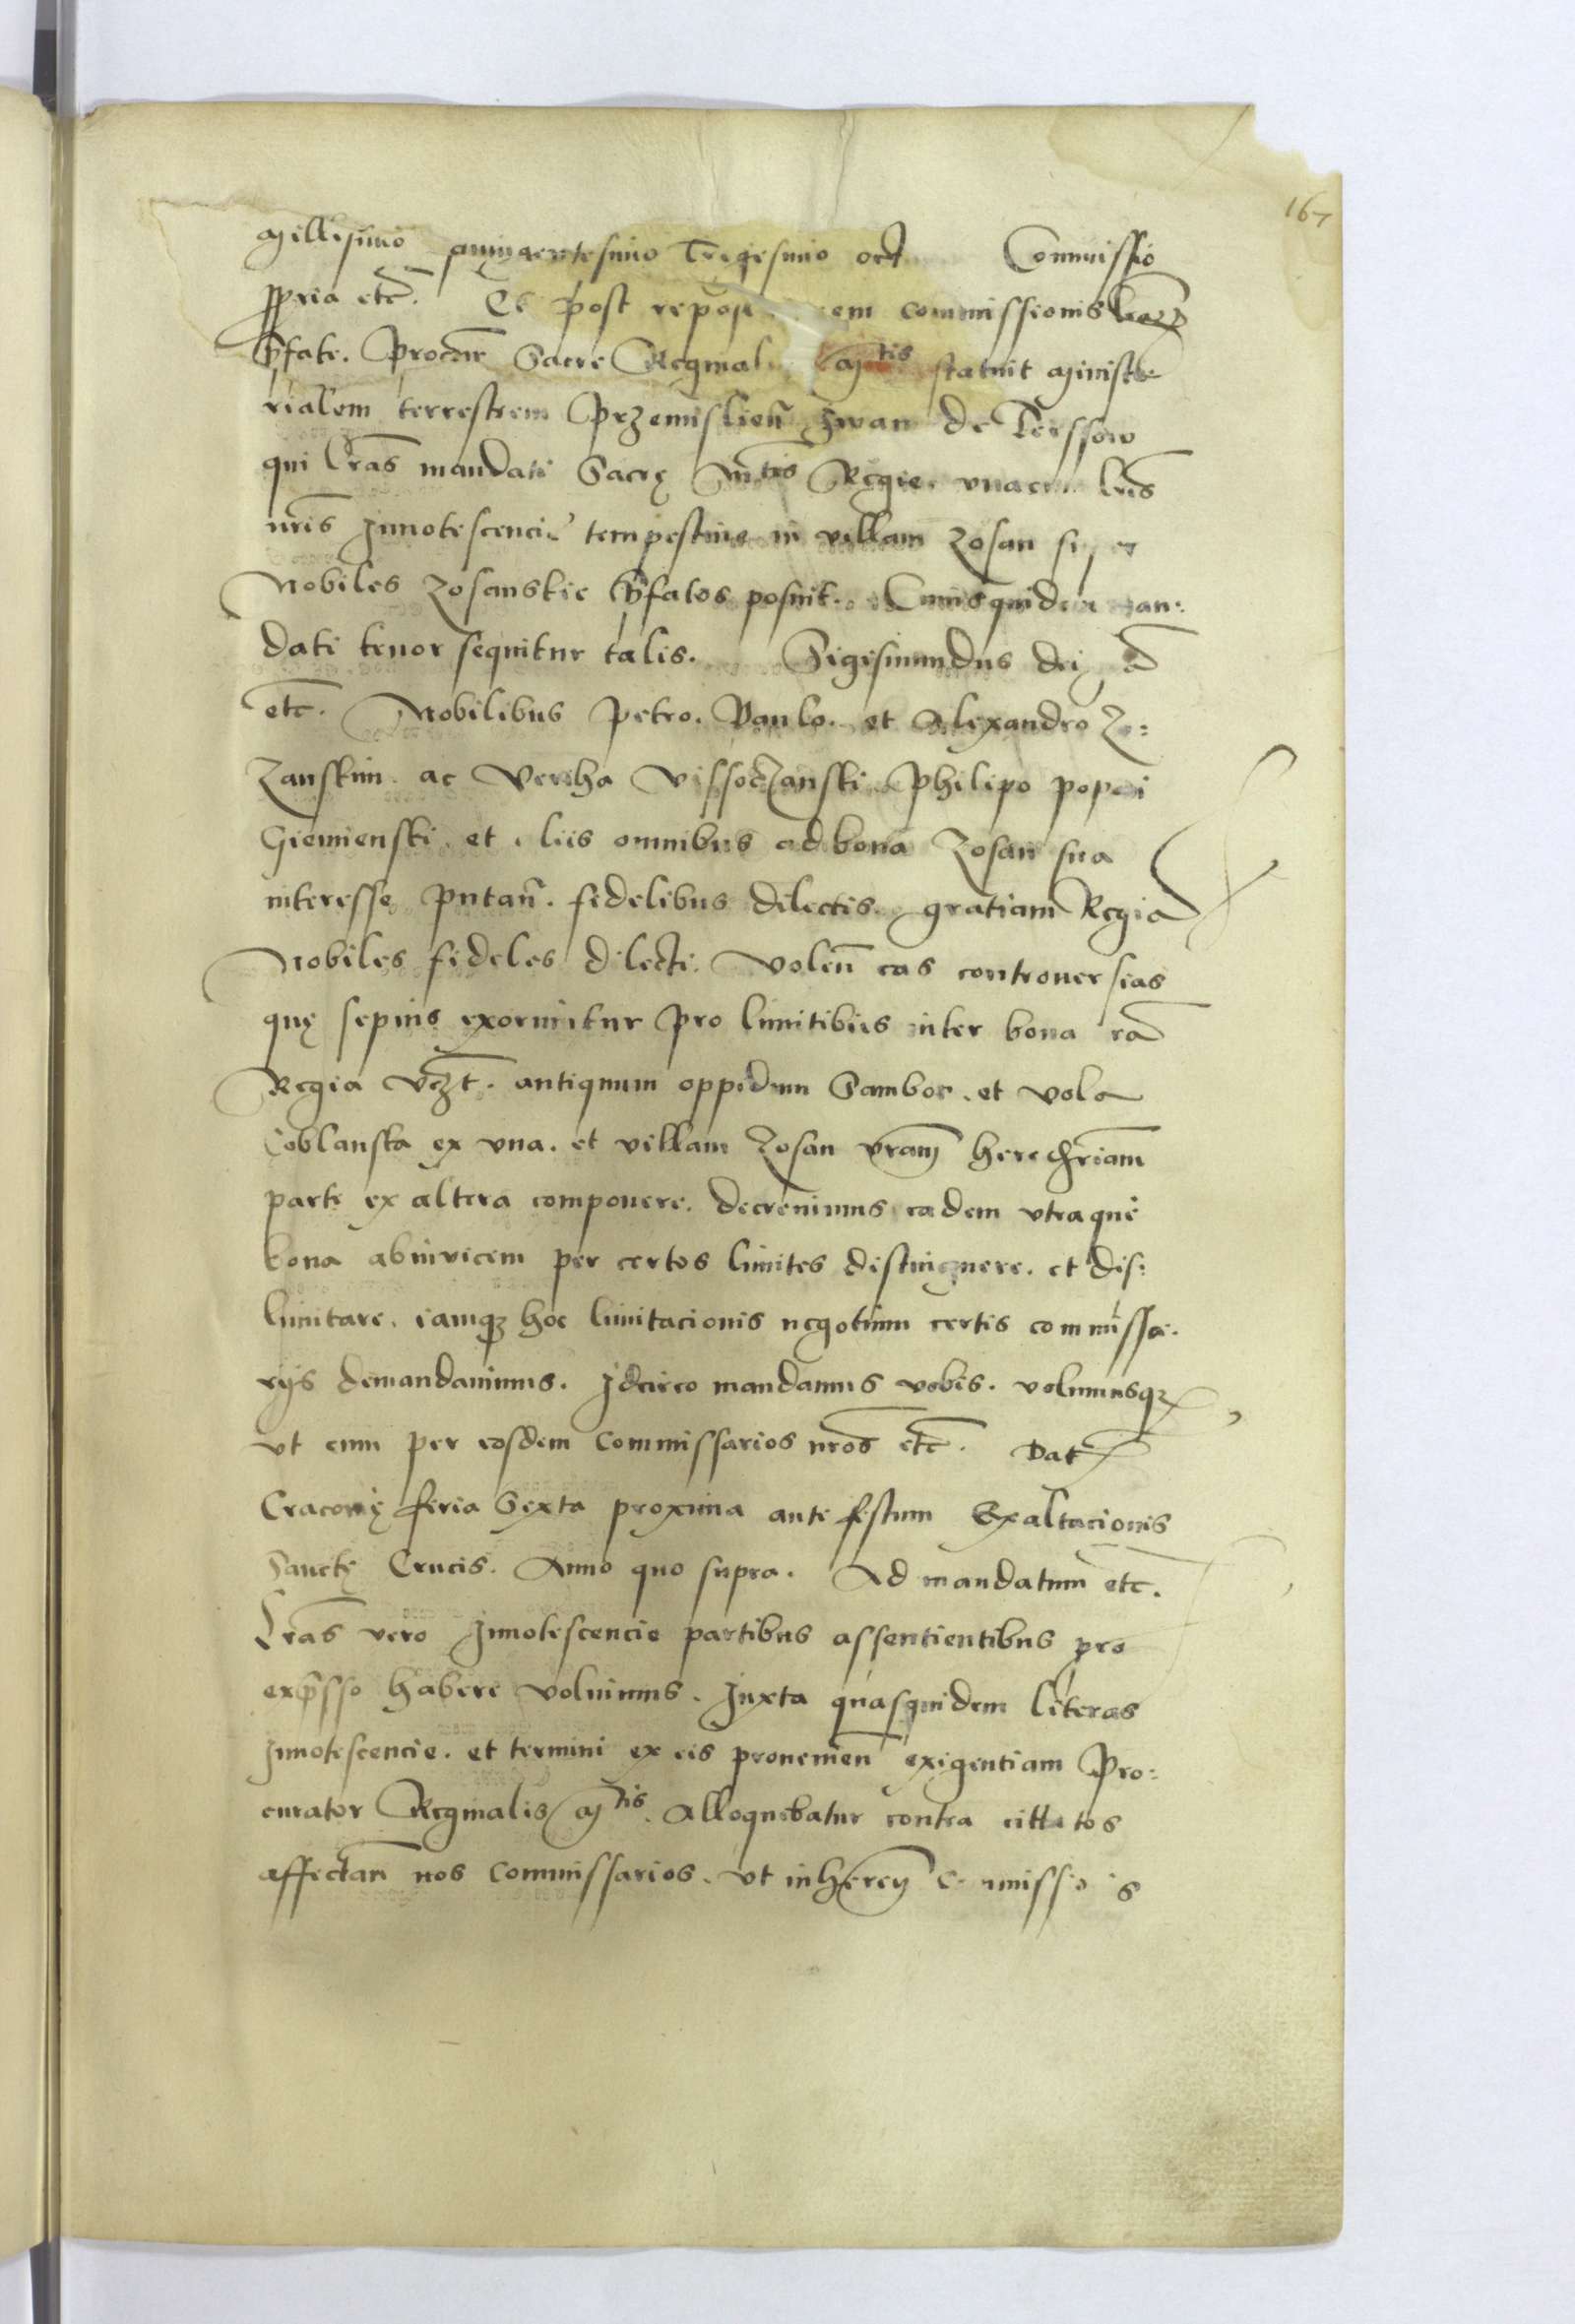 167
Millesimo quingentesimo Tregesimo oct Commissio
ppria etc. Et post reposi em commissionis lrarȝ
P̃fate. Procẽr Sacre Reginal Mtis statuit Ministe
rialem terrestrem Przemislieñ Iwan de Terssow
qui lr̃as mandati Sacrę Mtis Regie. vnacu lr̃is
nr̃is Innotescencie tempestiue in villam Zosan super
Nobiles Zosanskie P̃fatos posuit. Cuiusquidem man:
dati tenor sequitur talis. Sigismundus dei
etc. Nobilibus Petro. Paulo. et Alexandro Zo:
Zanskim. ac Vereha Vissoczanski Philipo popowi
Giemienski. et liis omnibus ad bona Zosan sua
interesse putañ. fidelibus dilectis. gratiam Regiã
Nobiles fideles dilecti. Voleñ eas controuersias
quę sepius exoriuntur pro limitibus inter bona rã
Regia vczt. antiquum oppidum Sambor. et vola
Coblanska ex vna. et villam Zosan vr̃am heredr̃iam
parte ex altera componere. decreuimus eadem vtraque
bona abinuicem per certos limites distinguere. et dis:
limitare. iamqȝ hoc limitacionis negotium certis commissa.
rÿs demandauimus. Idcirco mandamus vobis. volumusqȝ
vt cum per eosdem Commissarios nr̃os etc. Dat
Cracouię feria Sexta proxima ante festum Exaltacionis
Sanctę Crucis. Anno quo supra. Ad mandatum etc.
Lr̃as vero Innotescencie partibus assentientibus pro
exp̃sso habere voluimus. Iuxta quasquidem literas
Innotescencie. et termini ex eis prouenieñ exigentiam Pro:
curator Reginalis Mtis. Alloquebatur contra cittatos
affectañ nos Commissarios. vt inhereñ